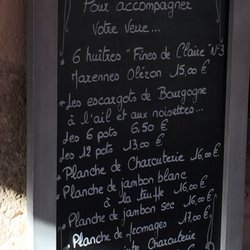 Pour accompagner
Votre Verre...
6 huîtres "Fines de Claire" N°3
Marennes Oléron 15,00 €
* Les escargots de Bourgogne
à l'ail et aux noisettes...
Les 6 pots 6,50 €
Les 12 pots 13,00 €
* Planche de Charcuterie 16,00 €
* Planche de jambon blanc
à la truffe 16,00 €
* Planche de jambon sec 16,00 €
* Planche de fromages 17,00 €
Charcuterie